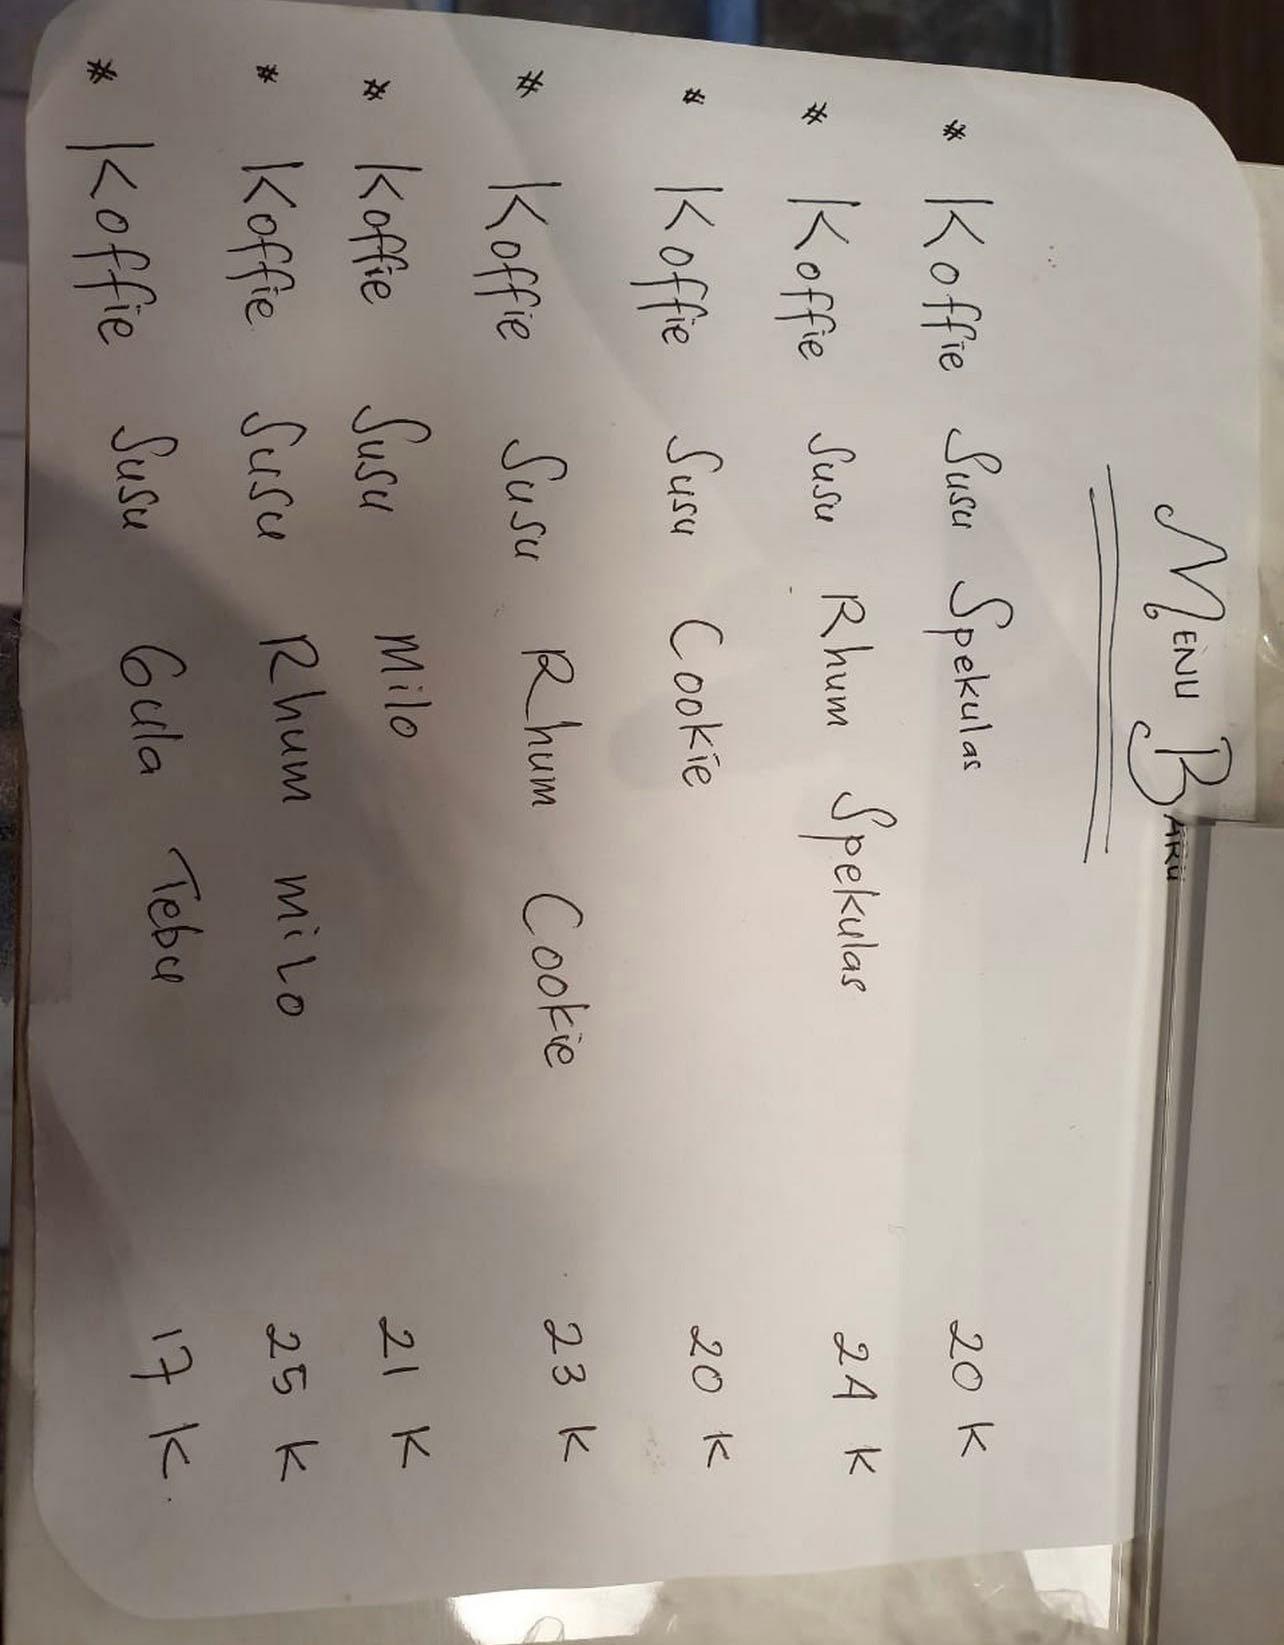 MENU BARU
* Koffie Susu Spekulas 20 K
* Koffie Susu Rhum Spekulas 24 K
* Koffie Susu Cookie 20 K
* Koffie Susu Rhum Cookie 23 K
* Koffie Susu Milo 21 K
* Koffie Susu Rhum MiLo 25 K
* Koffie Susu Gula Tebu 17 K.